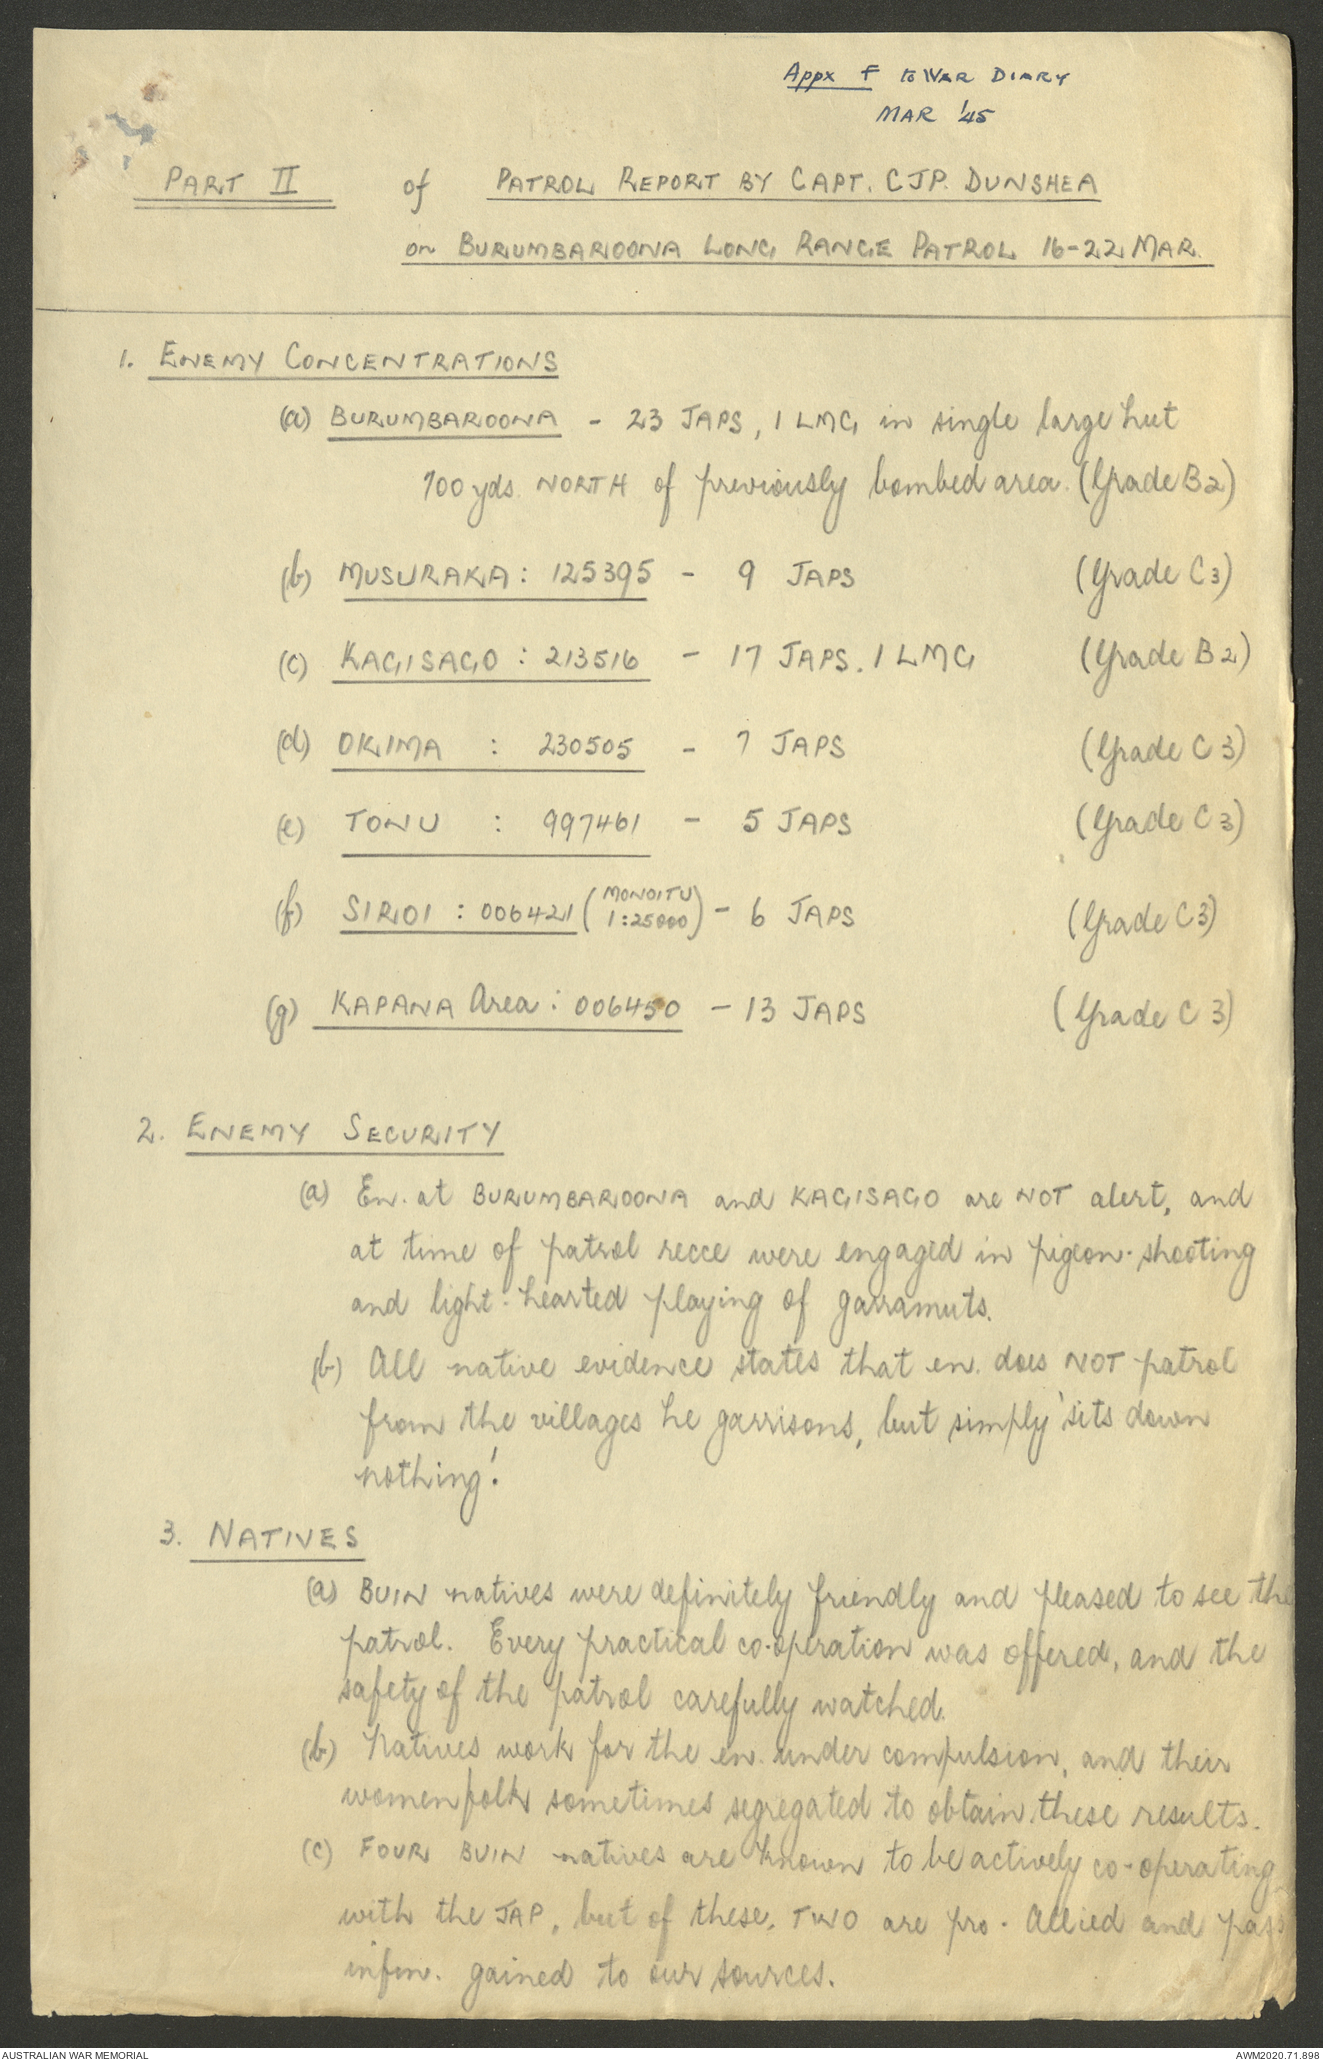 Appx F to WAR DIARY
MAR '45
PART II of PATROL REPORT BY CAPT. CJP. DUNSHEA
on BURUMBAROONA LONG RANGE PATROL 16-22 MAR.
1. ENEMY CONCENTRATIONS
(a) BURUMBAROONA - 23 JAPS, 1 LMG in single large hut
700 yds. NORTH of previously bombed area. (Grade B2)
(b) MUSURAKA: 125395 - 9 JAPS (Grade C3)
(c) KAGISAGO : 213516 - 17 JAPS. 1 LMG (Grade B2)
(d) OKIMA : 230505 - 7 JAPS (Grade C3)
(e) TONU : 997461 - 5 JAPS (Grade C3)
(f) SIROI : 006421 (MONOITU 1:25000) - 6 JAPS (Grade C3)
(g) KAPANA Area : 006450 - 13 JAPS (Grade C3)
2. ENEMY SECURITY
(a) En. at BURUMBAROONA and KAGISAGO are NOT alert, and
at time of patrol recce were engaged in pigeon-shooting
and light-hearted playing of garramuts.
(b) All native evidence states that en. does NOT patrol
from the villages he garrisons, but simply 'sits down
nothing'.
3. NATIVES
(a) BUIN natives were definitely friendly and pleased to see the
patrol. Every practical co-operation was offered, and the
safety of the patrol carefully watched.
(b) Natives work for the en. under compulsion, and their
womenfolk sometimes segregated to obtain these results.
(c) FOUR BUIN natives are known to be actively co-operating
with the JAP, but of these, TWO are pro-Allied and pass
infm. gained to our sources.
AUSTRALIAN WAR MEMORIAL
AWM2020.71.898